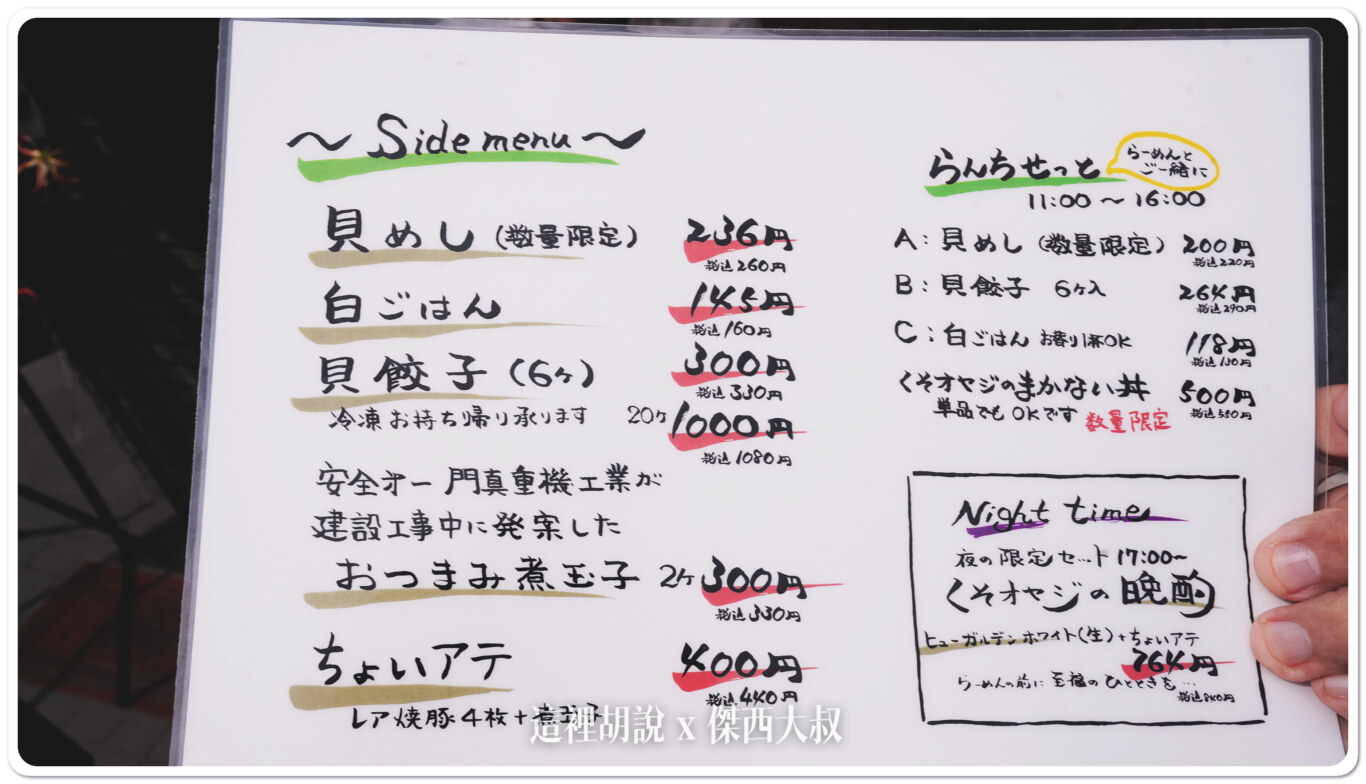 ～ Side menu ～
貝めし (数量限定) 236円
税込260円
白ごはん 145円
税込160円
貝餃子 (6ヶ) 300円
税込330円
冷凍お持ち帰り承ります 20ヶ 1000円
税込1080円
安全オー 門真重機工業が
建設工事中に発案した
おつまみ煮玉子 2ヶ 300円
税込330円
ちょいアテ 400円
税込440円
レア焼豚4枚+煮玉子
らんちせっと
らーめんと
ご一緒に
11:00 ～ 16:00
A: 貝めし (数量限定) 200円
税込220円
B: 貝餃子 6ヶ入 264円
税込290円
C: 白ごはん お替り1杯OK 118円
税込130円
くそオヤジのまかない丼 500円
単品でもOKです 数量限定 税込550円
Night time
夜の限定セット 17:00～
くそオヤジの晩酌
ヒューガルデンホワイト(生)+ちょいアテ
764円
らーめんの前に至福のひとときを…
税込840円
這裡胡說 x 傑西大叔